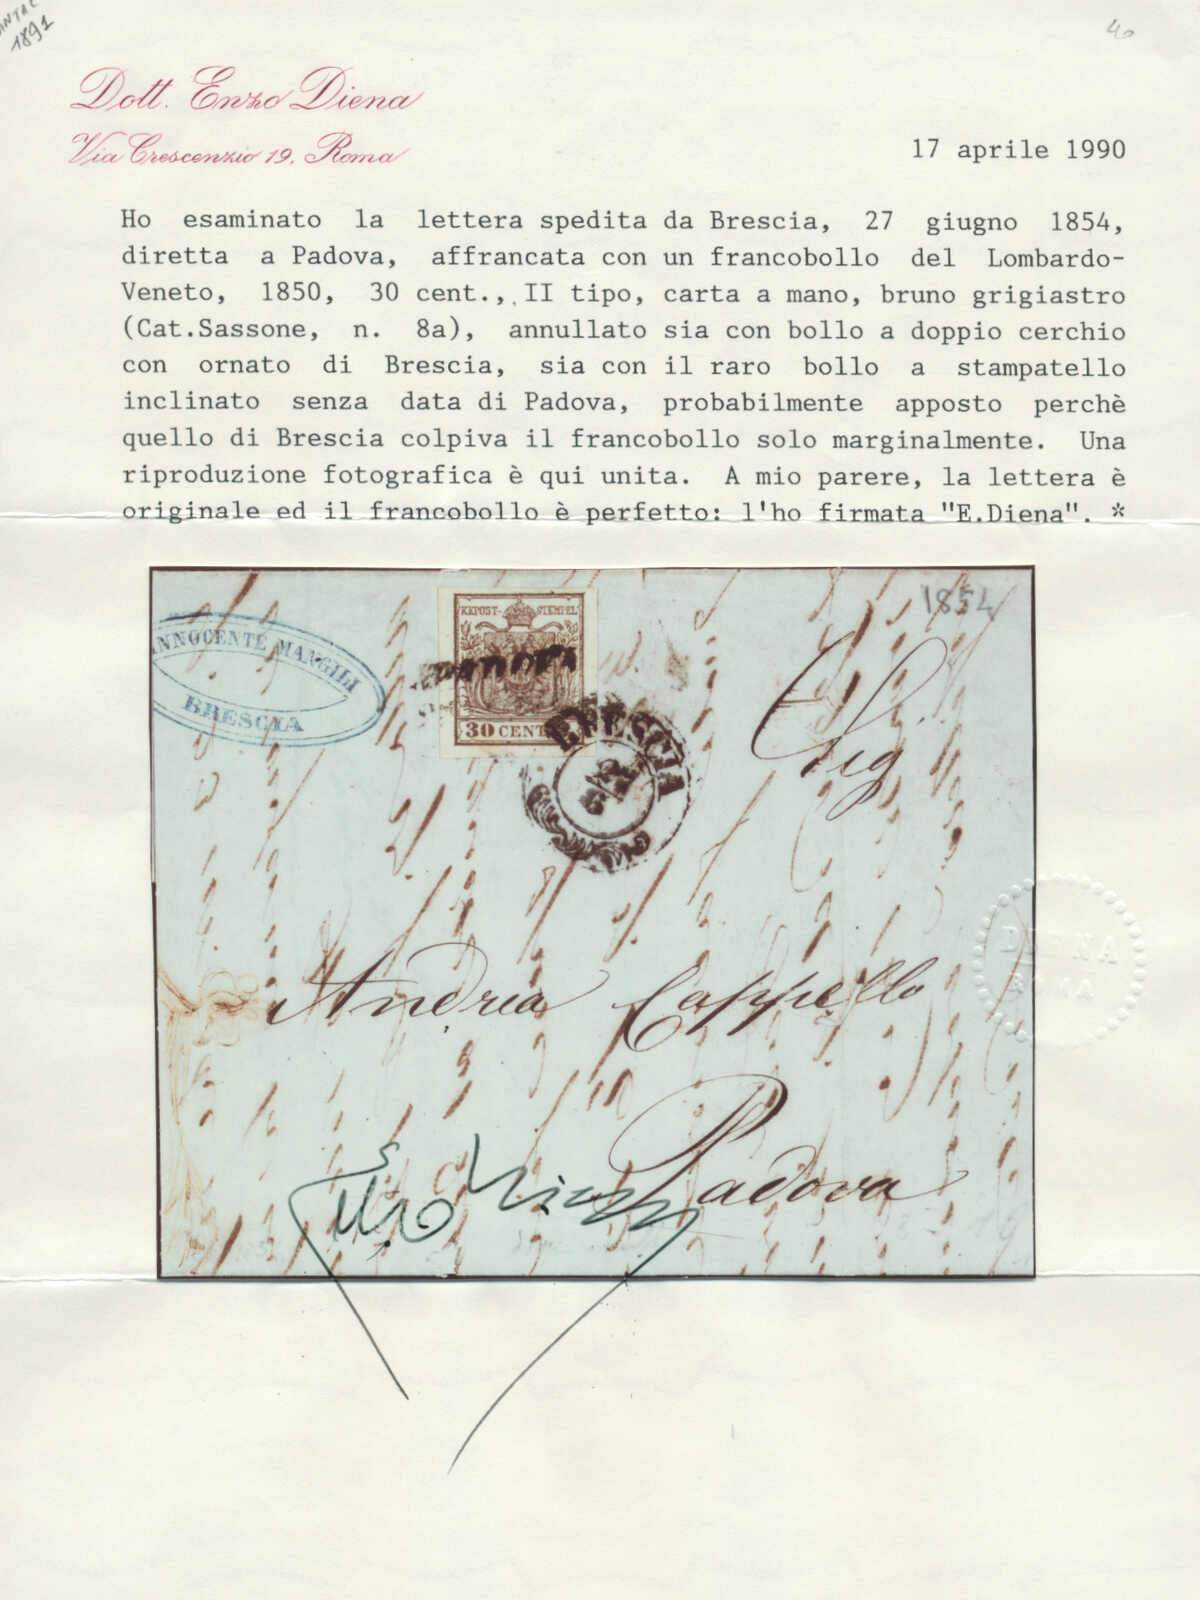 1891
40
Dott. Enzo Diena
Via Crescenzio 19. Roma
17 aprile 1990
Ho esaminato la lettera spedita da Brescia, 27 giugno 1854,
diretta a Padova, affrancata con un francobollo del Lombardo-
Veneto, 1850, 30 cent., II tipo, carta a mano, bruno grigiastro
(Cat.Sassone, n. 8a), annullato sia con bollo a doppio cerchio
con ornato di Brescia, sia con il raro bollo a stampatello
inclinato senza data di Padova, probabilmente apposto perchè
quello di Brescia colpiva il francobollo solo marginalmente. Una
riproduzione fotografica è qui unita. A mio parere, la lettera è
originale ed il francobollo è perfetto: l'ho firmata "E.Diena". *
INNOCENTE MANGILI
BRESCIA
KKPOST-STEMPEL
PADOVA
30 CENT
BRESCIA
1854
Sig.
Andrea Cappello
Padova